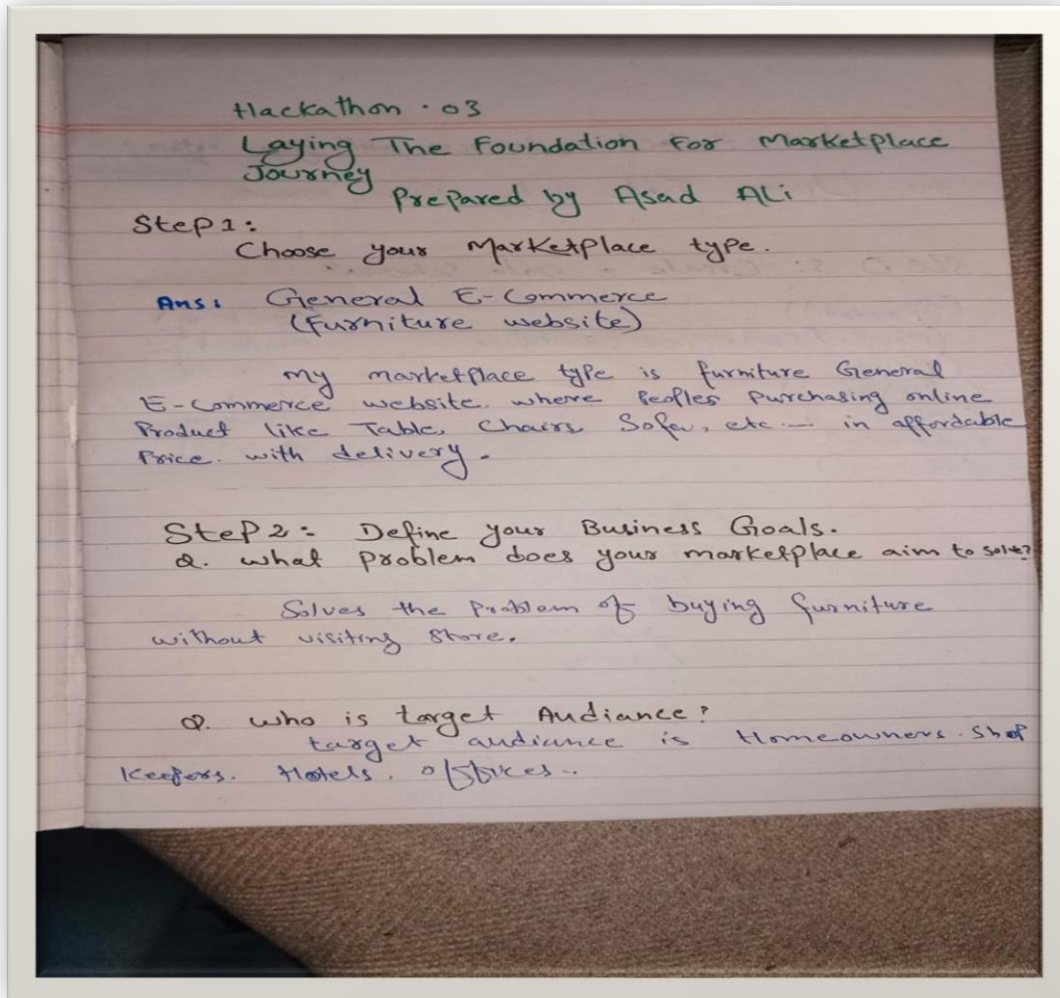 Hackathon - 03
Laying The Foundation For Marketplace
Journey
Prepared by Asad Ali
Step 1:
Choose your Marketplace type.
Ans: General E-Commerce
(Furniture website)
my marketplace type is furniture General
E-Commerce website. where Peoples Purchasing online
Product like Table, Chairs, Sofa, etc... in affordable
Price. with delivery.
Step 2: Define your Business Goals.
Q. what problem does your marketplace aim to solve?
Solves the Problem of buying furniture
without visiting Store.
Q. who is target Audiance?
target audiance is Homeowners. Shop
Keepers. Hotels. offices..